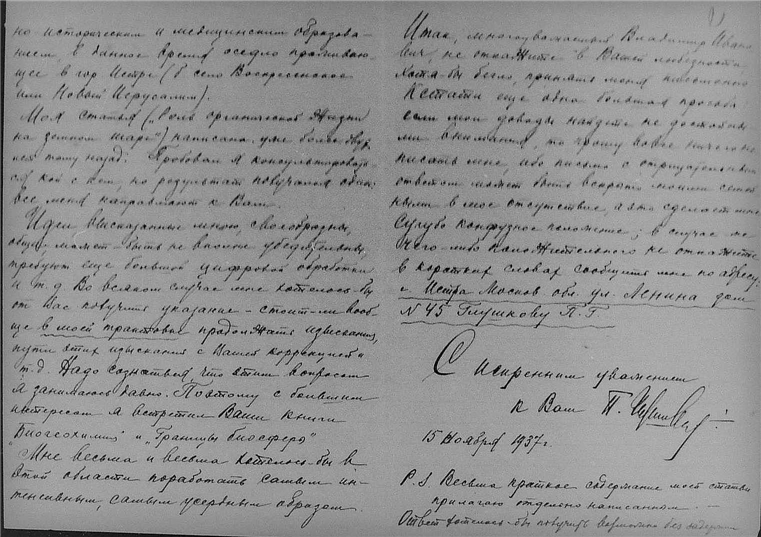 но-историческим и медицинским образова-
нием, в данное время оседло проживаю-
щее в гор Истре (б село Воскресенское
или Новый Иерусалим).
Моя статья („Роль органической Жизни
на земном шаре") написана уже более двух
лет тому назад: Пробовал я консультировать-
ся кой с кем, но результат получался один:
все меня направляют к Вам.
Идеи высказанные мною, своеобразны,
может-быть не вполне убедительны,
требуют еще большой цифровой обработки
и т.д Во всяком случае мне хотелось-бы
от Вас получить указание – стоит-ли вооб-
ще в моей трактовке продолжать изыскания,
пути этих изысканий с Вашей коррекцией и
т.д. Надо сознаться что этим вопросом
я занимаюсь давно. Поэтому с большим
интересом я встретил Ваши книги
„Биогеохимия" и „Границы биосферы"
Мне весьма и весьма хотелось-бы в
этой области поработать самым ин-
тенсивным, самым усердным образом.
Итак, многоуважаемый Владимир Ивано-
вич, не откажите в Вашей любезности
хотя-бы было, принять меня
Кстати еще одна большая просьба:
если мои доводы найдете не достойны-
ми внимания, то прошу вовсе ничего не
писать мне, ибо письмо с отрицательным
ответом может быть вскрыто моими семей-
ными в мое отсутствие, а это сделает мне
сугубо конфузное положение; в случае-же
чего-либо положительного не откажите
в коротких словах сообщить мне по адресу:
г. Истра Москов обл. ул. Ленина дом
N 45 Глушкову П. Г
С искренним уважением
к Вам П.
15 Ноября 1937г.
P.S Весьма краткое содержание моей статьи
прилагаю отдельно написанном.
Ответ хотелось-бы получить возможно без задержки